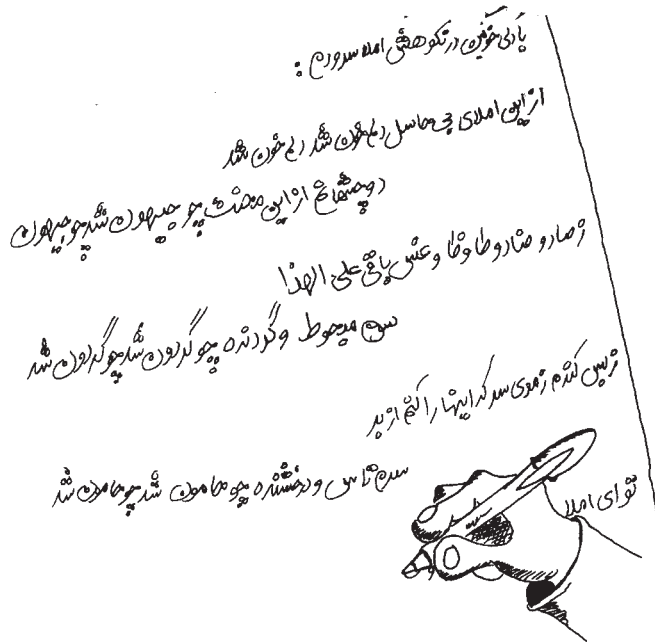 با دلی خونین در نکوهش املا سرودم :
از این املای بی حاسل دلم خون شد دلم خون شد
دو چشمانم از این محنت چو جیهون شد چو جیهون
ز صاد و ضاد و طا و ظا و عین باقی علی الهذا
چو گردون شد چو گردون شد
ز بس کندم ز موی سر که اینها را کنم از بر
سرم تاس و درخشنده چو هامون شد چو هامون شد
تو ای املا